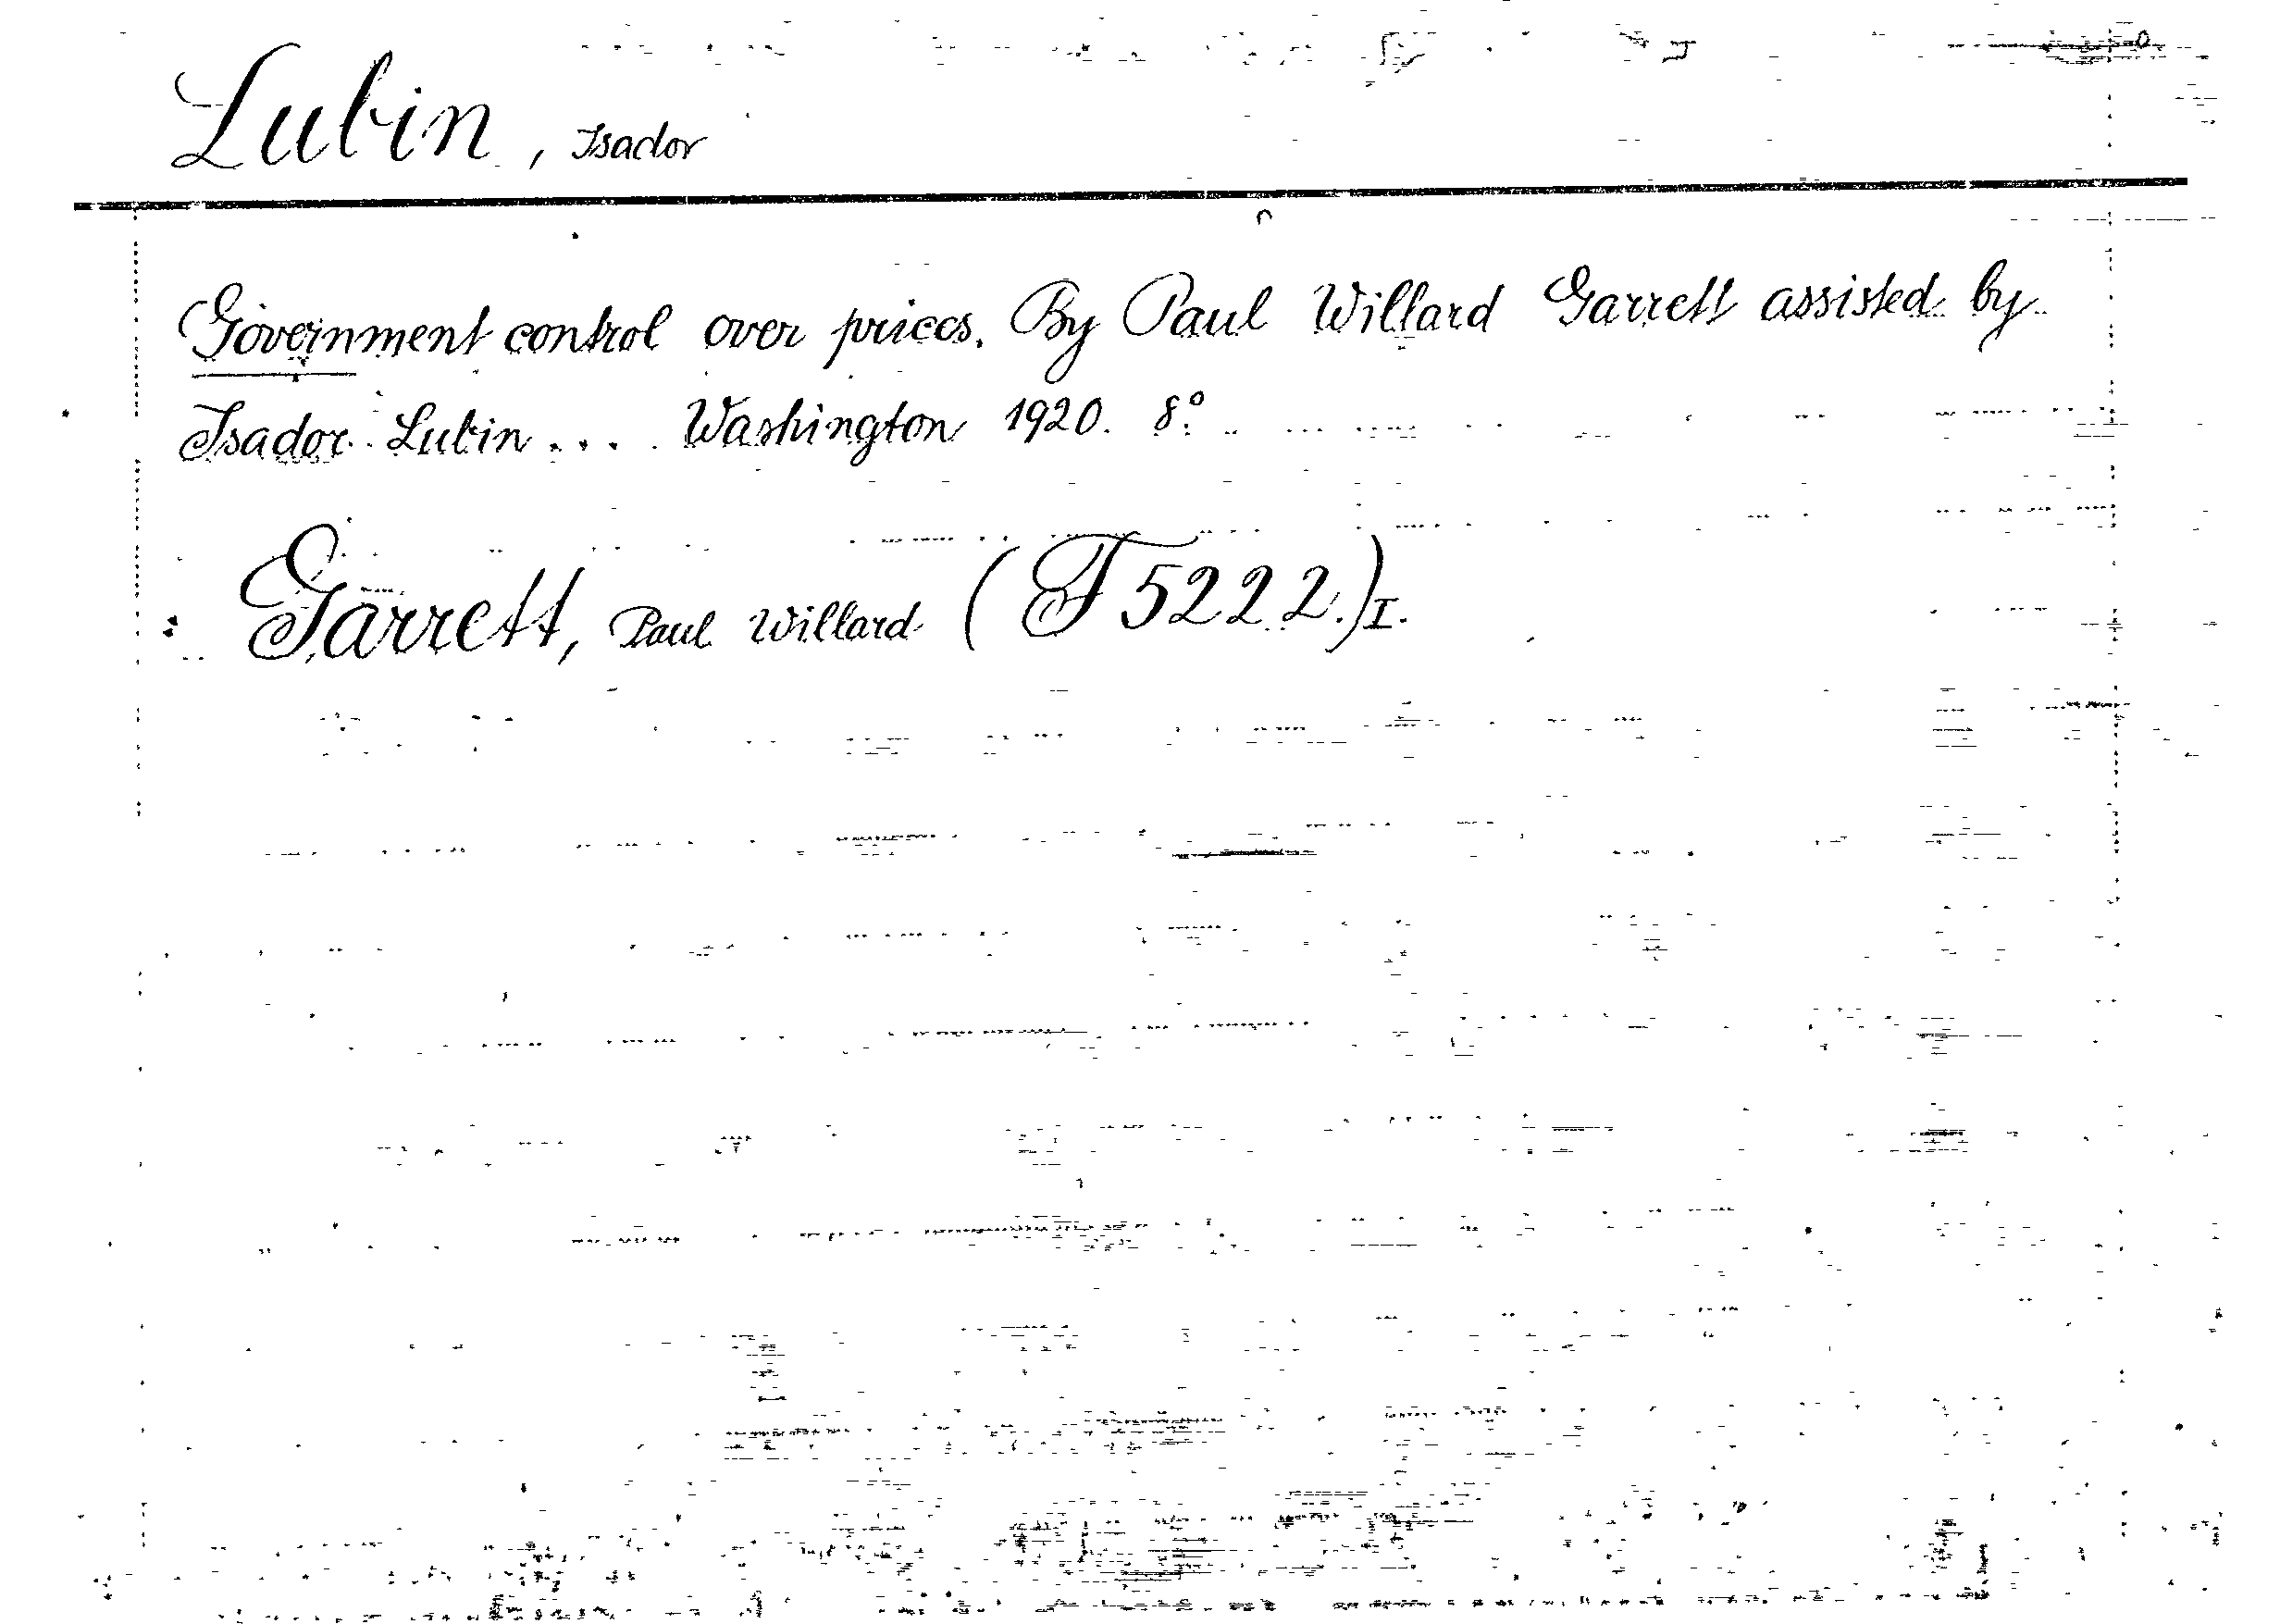 Lubin, Isador
Government control over prices. By Paul Willard Garrett assisted by
Isador Lubin .... Washington 1920. 8°.
: Garrett, Paul Willard (F 5222.) I.